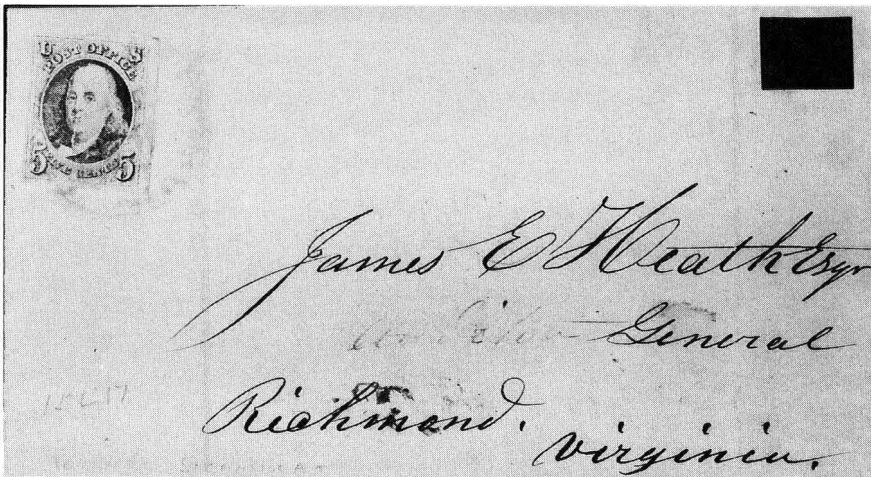 U S
POST OFFICE
5 FIVE CENTS 5
James E Heath Esqr
Auditor General
Richmond.
Virginia.